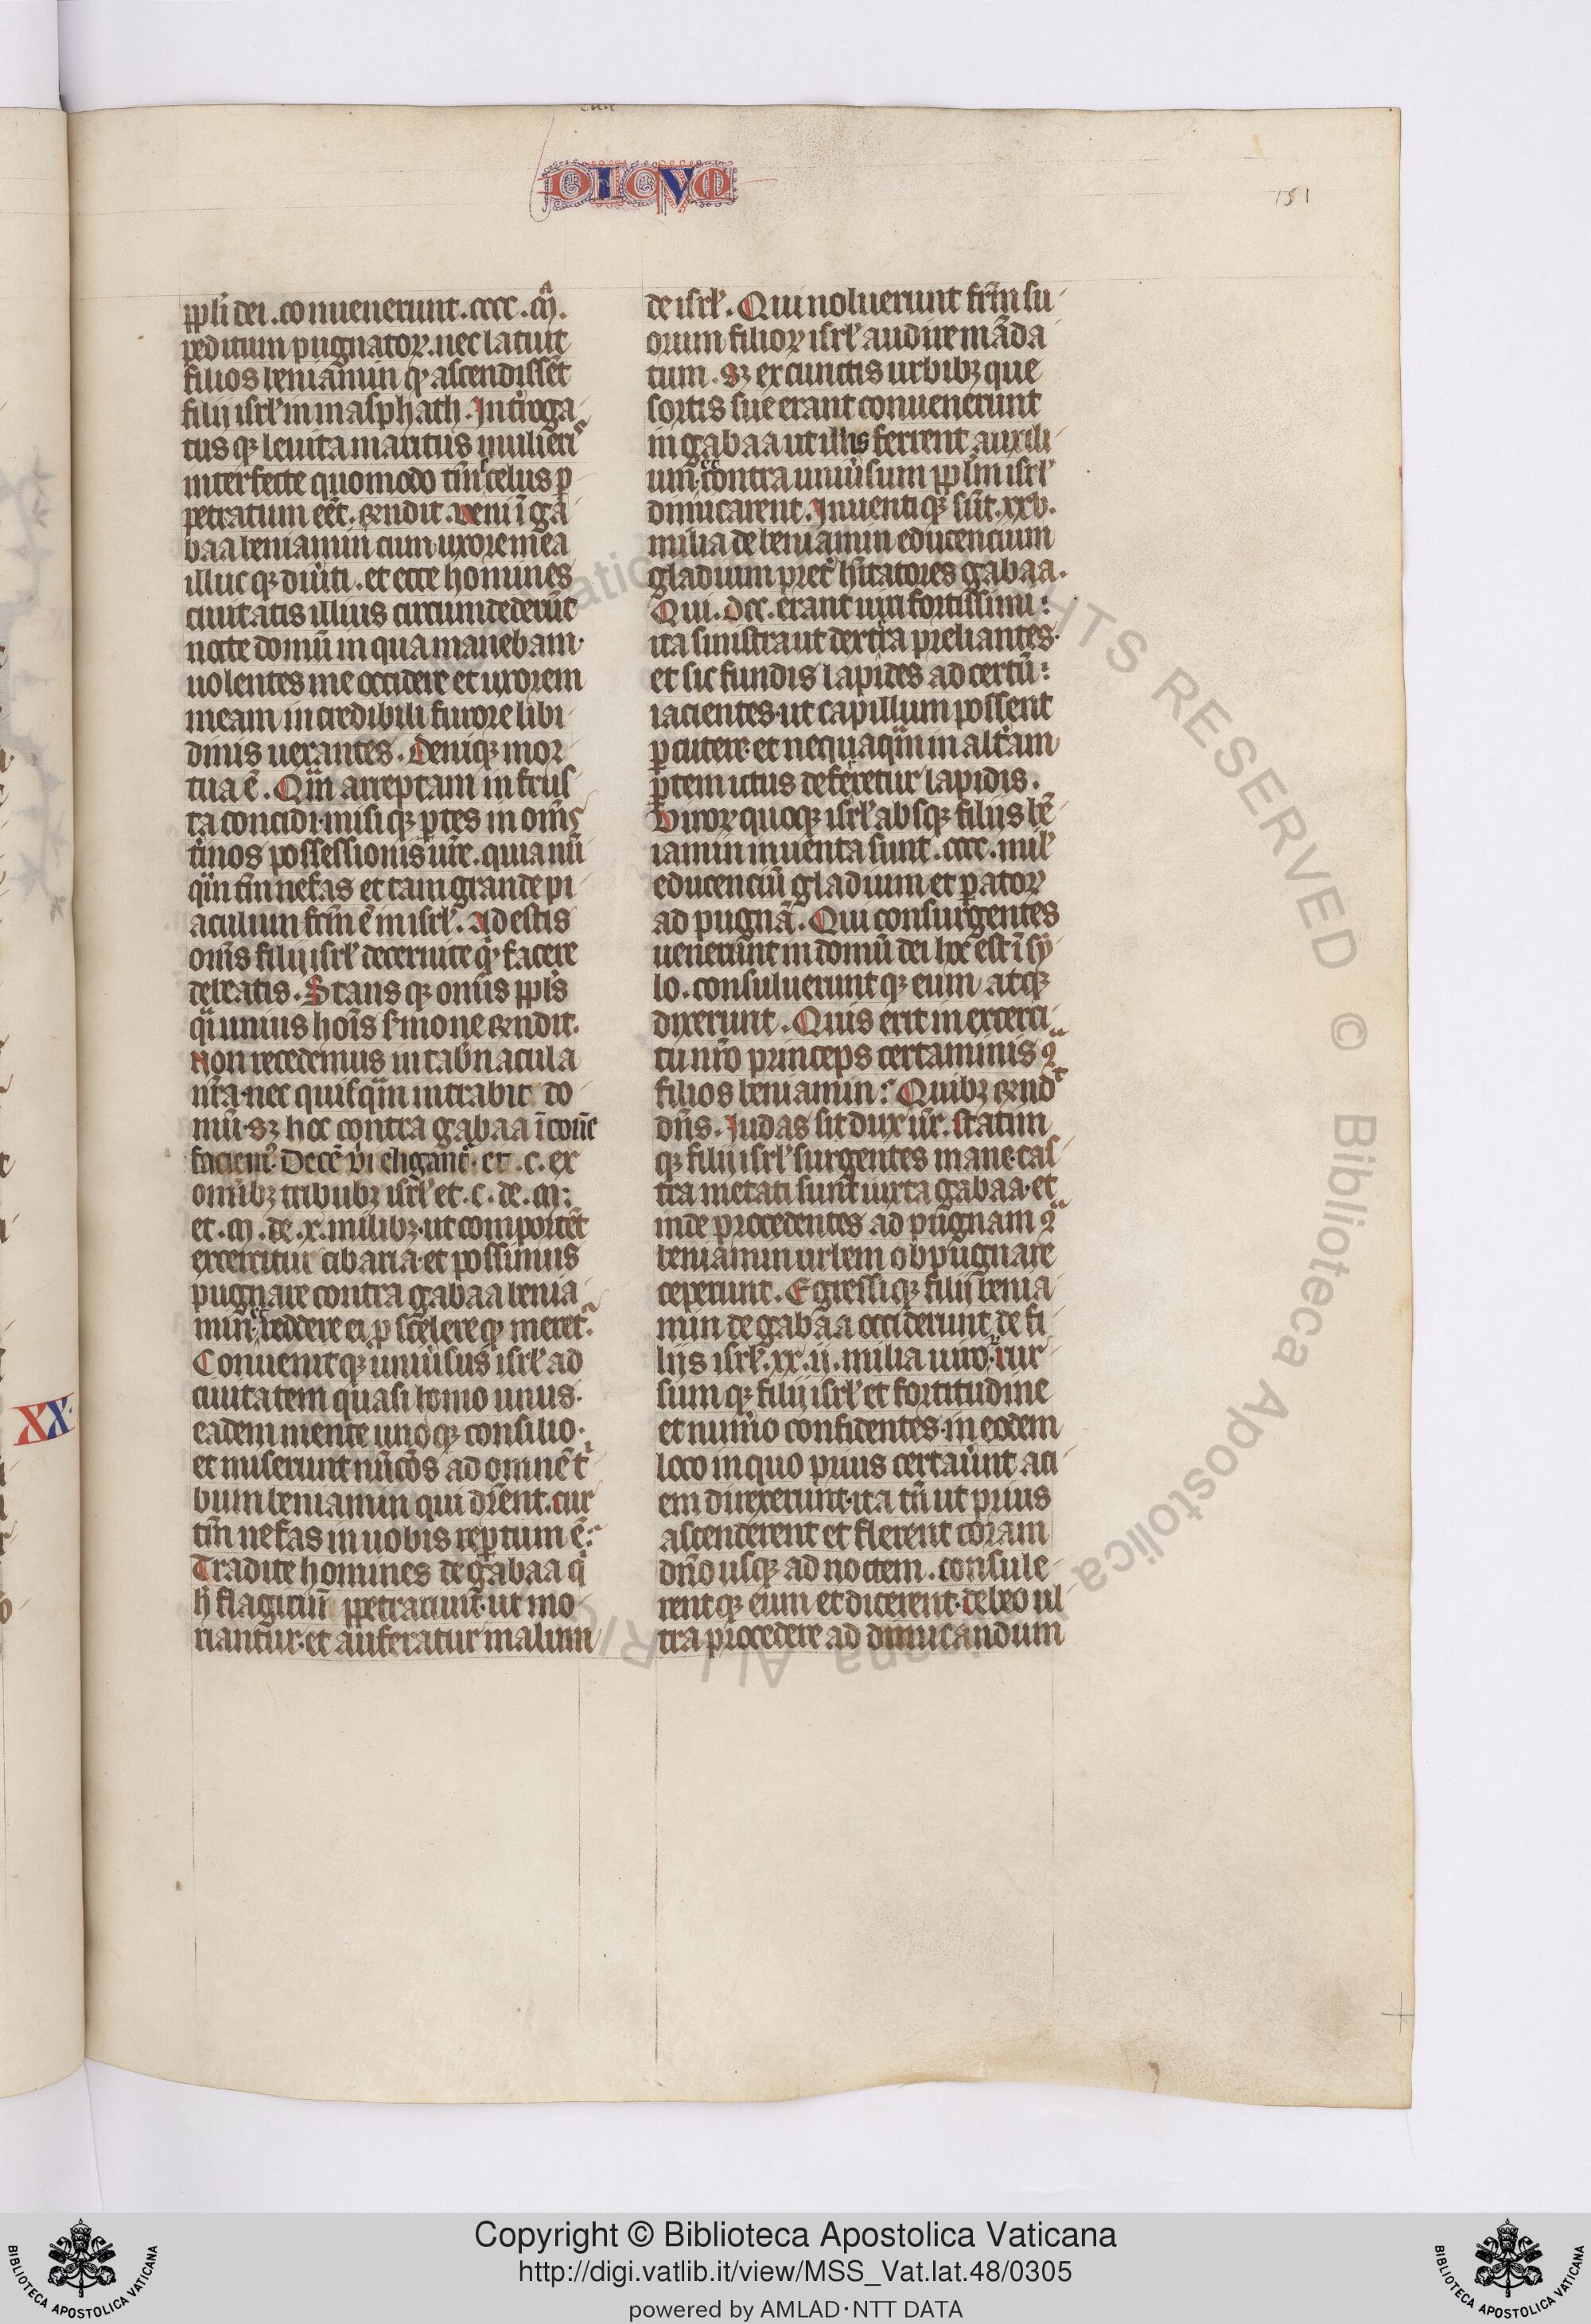 DICVM
151
ppl̄i dei . conuenerunt . cccc . m̄ .
peditum pugnatoꝝ . nec latuit
filios beniamin qͩ ascendissēt
filij isrl̓ in masphath . Int̓roga
tus qꝫ leuita maritus mulieri
interfecte quomodo tm̄ scelus ꝑ
petratum eēt . rn̄dit . Veni ī ga
baa beniamin cum uxore mea
illuc qꝫ diūti . et ecce homines
ciuitatis illius circumdederūt
nocte domū in qua manebam ·
uolentes me occidere et uxorem
meam incredibili furore libi
dinis uexantes . Deniqꝫ mor
tua ē . Qm̄ arreptam in frus
ta concidi · misi qꝫ ꝑtes in om̄s
t̓minos possessionis ur̄e . quia nū
qm̄ tm̄ nefas et tam grande pi
aculum fcm̄ ē in isrl̓ . Adestis
om̄s filij isrl̓ decernite qͩ facere
debeatis . Stans qꝫ omnis ppl̄s
q̄i unius hoīs s̓mone rn̄dit .
Non recedemus in tab̓nacula
nr̄a · nec quisqm̄ intrabit do
mū · sꝫ hoc contra gabaa ī cōūe
faciem̓ . Decē ui eligant̓ . et . c . ex
omībꝫ tribubꝫ isrl̓ et . c . de . m :
et . m . de . x . milibꝫ · ut comportēt
exercitui cibaria · et possimus
pugnare contra gabaa benia
min · reddere ei ꝓ scelere qͩ meret̓ .
Conuenit qꝫ uniūsus isrl̓ ad
ciuitatem quasi homo unus ·
eadem mente uno qꝫ consilio ·
et miserunt nūcios ad omnē t̓
bum beniamin qui dr̄ent . cur
tm̄ nefas in uobis reꝑtum ē :
Tradite homines de gabaa qͥ
h̓ flagitiū ꝑpetraciunt · ut mo
riantur · et auferatur malum
de isrl̓ . Qui noluerunt frm̄ su
orum filioꝝ isrl̓ audire māda
tum . sꝫ ex cunctis urbibꝫ que
sortis sue erant conuenerunt
in gabaa ut illis ferrent auxili
um · et contra uniūsum ppl̄m isrl̓
dimicarent . Inuenti qꝫ sūt . xxv .
milia de beniamin educencium
gladium pret̓ hītatores gabaa .
Qui . dcc . erant uiri fortissimi :
ita sinistra ut dextra preliantes ·
et sic fundis lapides ad certū :
iacientes · ut capillum possent
ꝑcutere · et nequaqm̄ in alt̓am
ꝑtem ictus deferretur lapidis .
Viroꝝ quoqꝫ isrl̓ absqꝫ filijs bē
iamin inuenta sunt . cccc . mil̓
educenciū gladium et ꝑatoꝝ
ad pugnā . Qui consurgentes
uenerunt in domū dei hoc est ī sy
lo . consuluerunt qꝫ eum atqꝫ
dixerunt . Quis erit in exerci
tu nr̄o princeps certaminis ꝯͣ
filios beniamin : Quibꝫ rn̄d̓
dn̄s . Iudas sit dux ur̄ . Statim
qꝫ filij isrl̓ surgentes mane · cas
tra metati sunt iuxta gabaa · et
inde procedentes ad pugnam ꝯͣ
beniamin urbem obpugnare
ceperunt . Egressi qꝫ filij benia
min de gabaa occiderunt de fi
lijs isrl̓ . xx . ij . milia uiroꝝ . rur
sum qꝫ filij isrl̓ et fortitudine
et num̓o confidentes · in eodem
loco in quo prius certaūnt aci
em direxerunt · ita tn̄ ut prius
ascenderent et flerent coram
dn̄o usqꝫ ad noctem . consule
rent qꝫ eum et dicerent · debeo ul
tra procedere ad dimicandum
XX
Copyright © Biblioteca Apostolica Vaticana
http://digi.vatlib.it/view/MSS_Vat.lat.48/0305
powered by AMLAD·NTT DATA
BIBLIOTECA APOSTOLICA VATICANA
BIBLIOTECA APOSTOLICA VATICANA